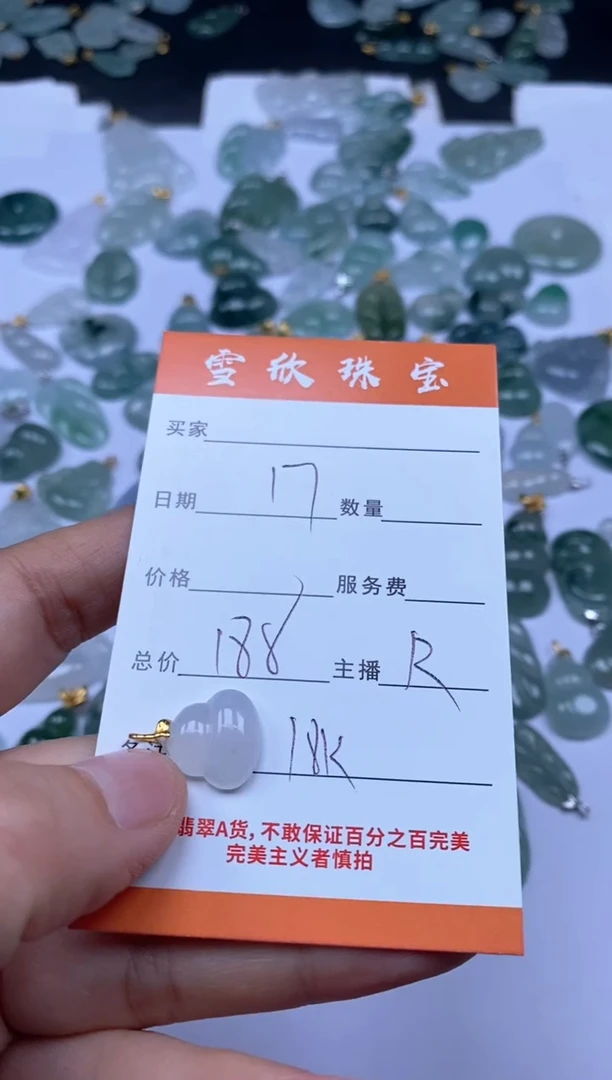 雪欣珠宝
买家
日期 17 数量
价格 服务费
总价 188 主播 R
18K
翡翠A货,不敢保证百分之百完美
完美主义者慎拍